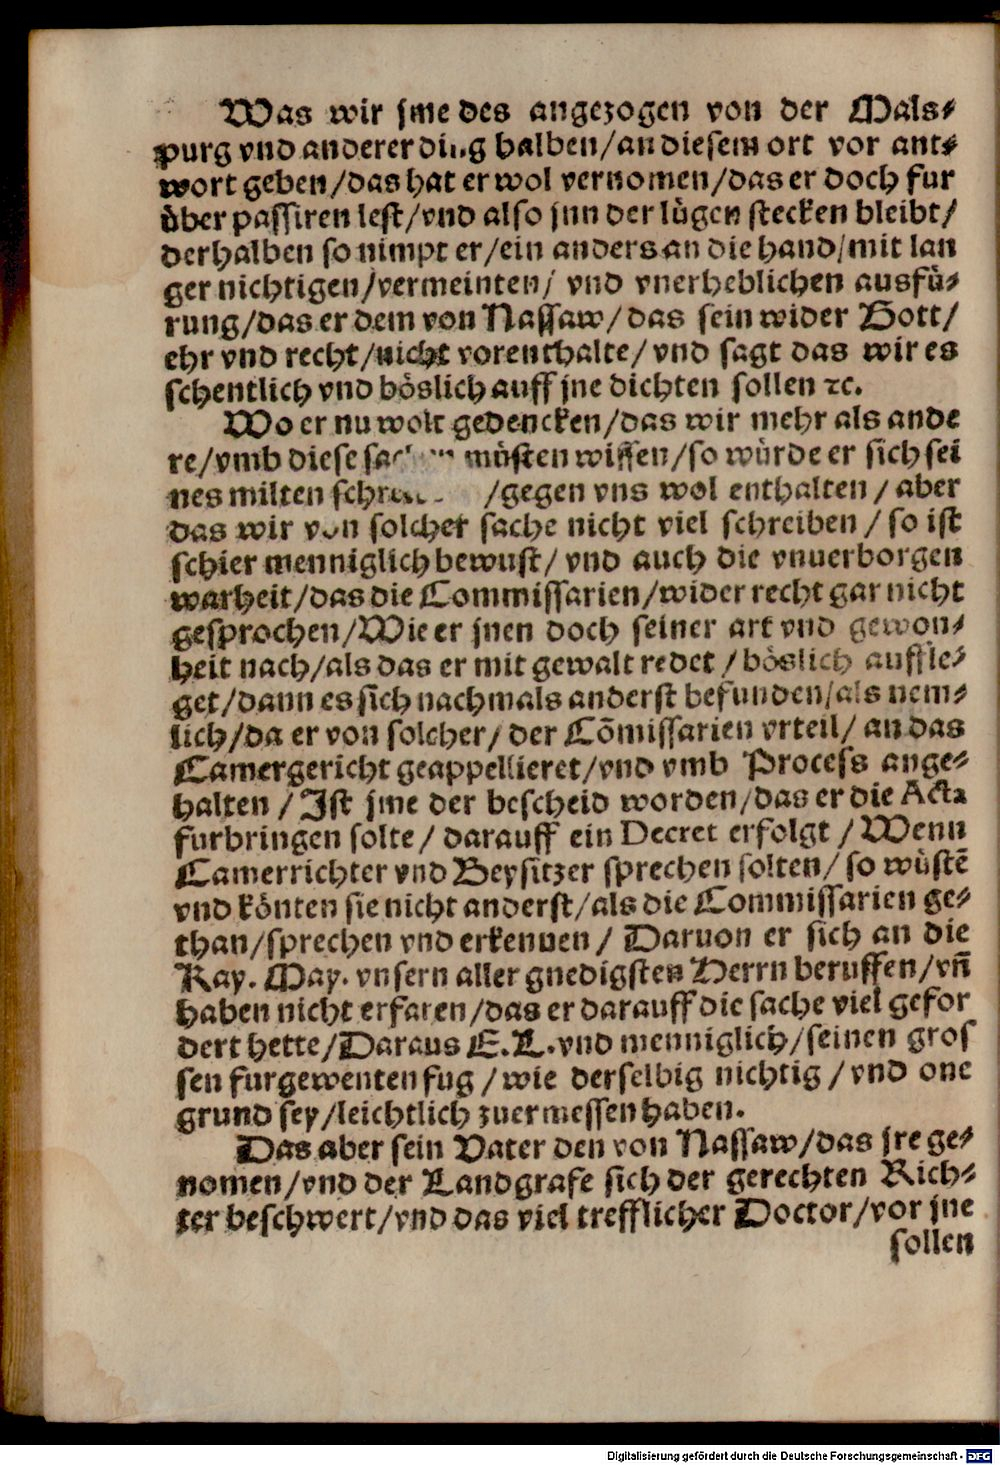 Was wir jme des angezogen von der Mals⸗
purg vnd anderer ding halben/an diesem ort vor ant⸗
wort geben/das hat er wol vernomen/das er doch fur
vͤber passiren lest/vnd also jnn der luͤgen stecken bleibt/
derhalben so nimpt er/ein anders an die hand/mit lan
ger nichtigen/vermeinten/ vnd vnerheblichen ausfuͤ⸗
rung/das er dem von Nassaw/das sein wider Gott/
ehr vnd recht/nicht vorenthalte/vnd sagt das wir es
schentlich vnd boͤslich auff jne dichten sollen ꝛc.
Wo er nu wolt gedencken/das wir mehr als ande
re/vmb diese muͤsten wissen/so wuͤrde er sich sei
nes milten /gegen vns wol enthalten / aber
das wir von solcher sache nicht viel schreiben / so ist
schier menniglich bewust/ vnd auch die vnuerborgen
warheit/das die Commissarien/wider recht gar nicht
gesprochen/Wie er jnen doch seiner art vnd gewon⸗
heit nach/als das er mit gewalt redet / boͤslich auffle⸗
get/dann es sich nachmals anderst befunden/als nem⸗
lich/da er von solcher/ der Cōmissarien vrteil/ an das
Camergericht geappellieret/vnd vmb Process ange⸗
halten / Ist jme der bescheid worden/das er die Acta
furbringen solte/ darauff ein Decret erfolgt / Wenn
Camerrichter vnd Beysitzer sprechen solten/ so wuͤstē
vnd koͤnten sie nicht anderst/als die Commissarien ge⸗
than/sprechen vnd erkennen / Daruon er sich an die
Kay. May. vnsern aller gnedigsten Herrn beruffen/vn̄
haben nicht erfaren/das er darauff die sache viel gefor
dert hette/Daraus E.L.vnd menniglich/seinen gros
sen furgewenten fug / wie derselbig nichtig / vnd one
grund sey/leichtlich zuermessen haben.
Das aber sein Vater den von Nassaw/das jre ge⸗
nomen/vnd der Landgrafe sich der gerechten Rich⸗
ter beschwert/vnd das viel trefflicher Doctor/vor jne
sollen
Digitalisierung gefördert durch die Deutsche Forschungsgemeinschaft - DFG